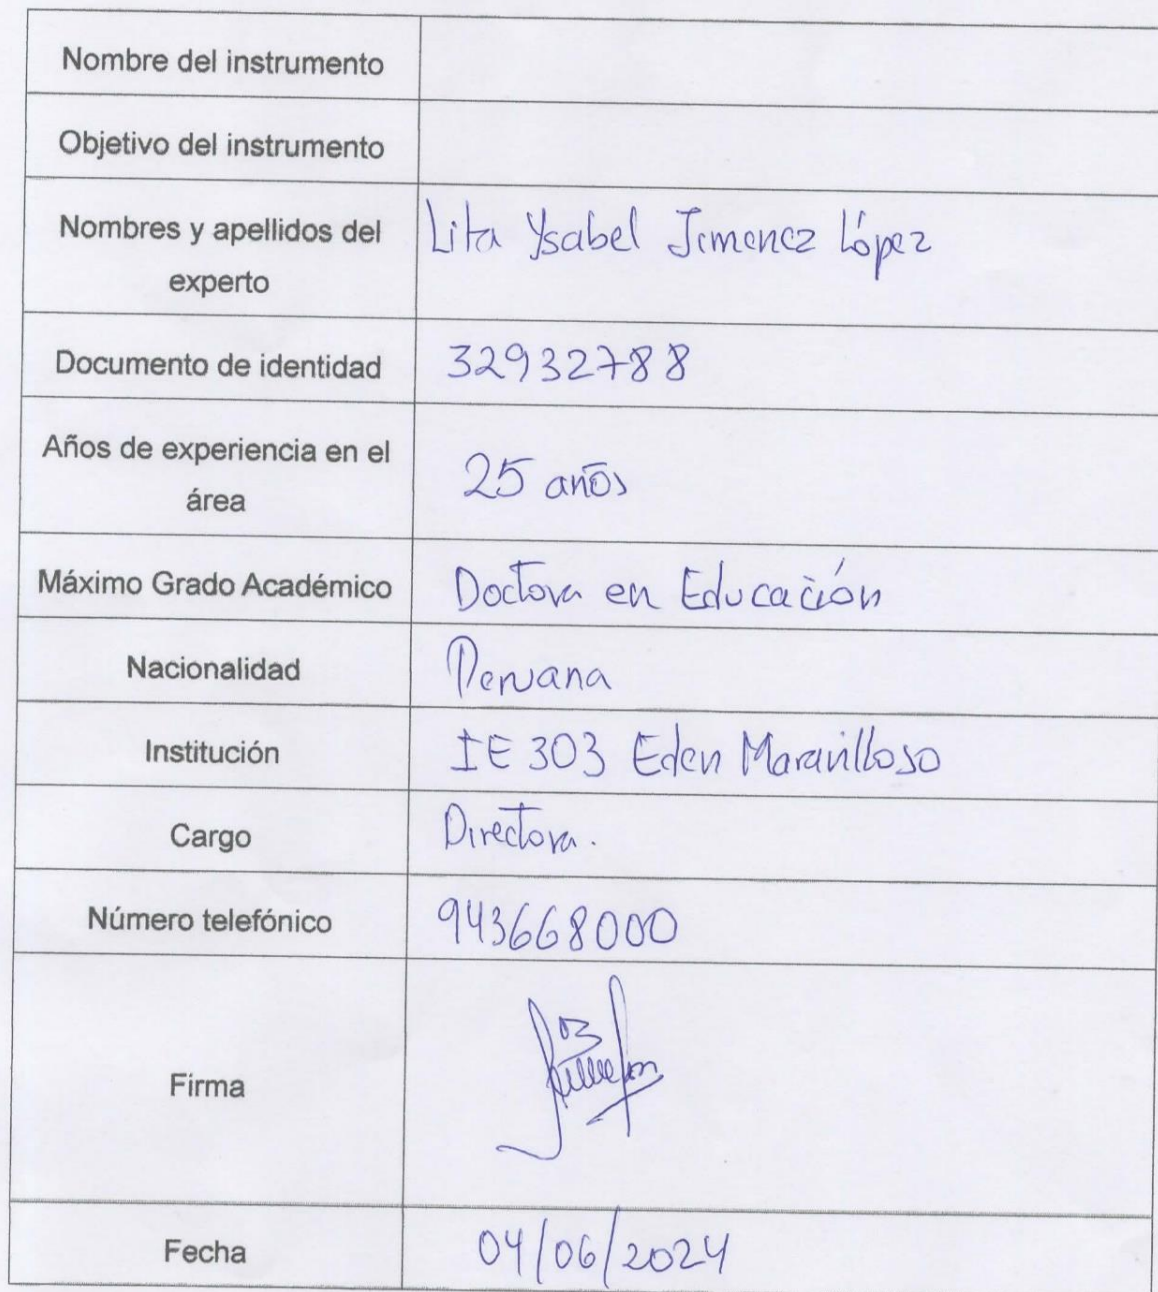 Nombre del instrumento
Objetivo del instrumento
Nombres y apellidos del
experto
Lita Ysabel Jimenez López
Documento de identidad
32932788
Años de experiencia en el
área
25 años
Máximo Grado Académico
Doctora en Educación
Nacionalidad
Peruana
Institución
IE 303 Eden Maravilloso
Cargo
Directora.
Número telefónico
943668000
Firma
Fecha
04/06/2024